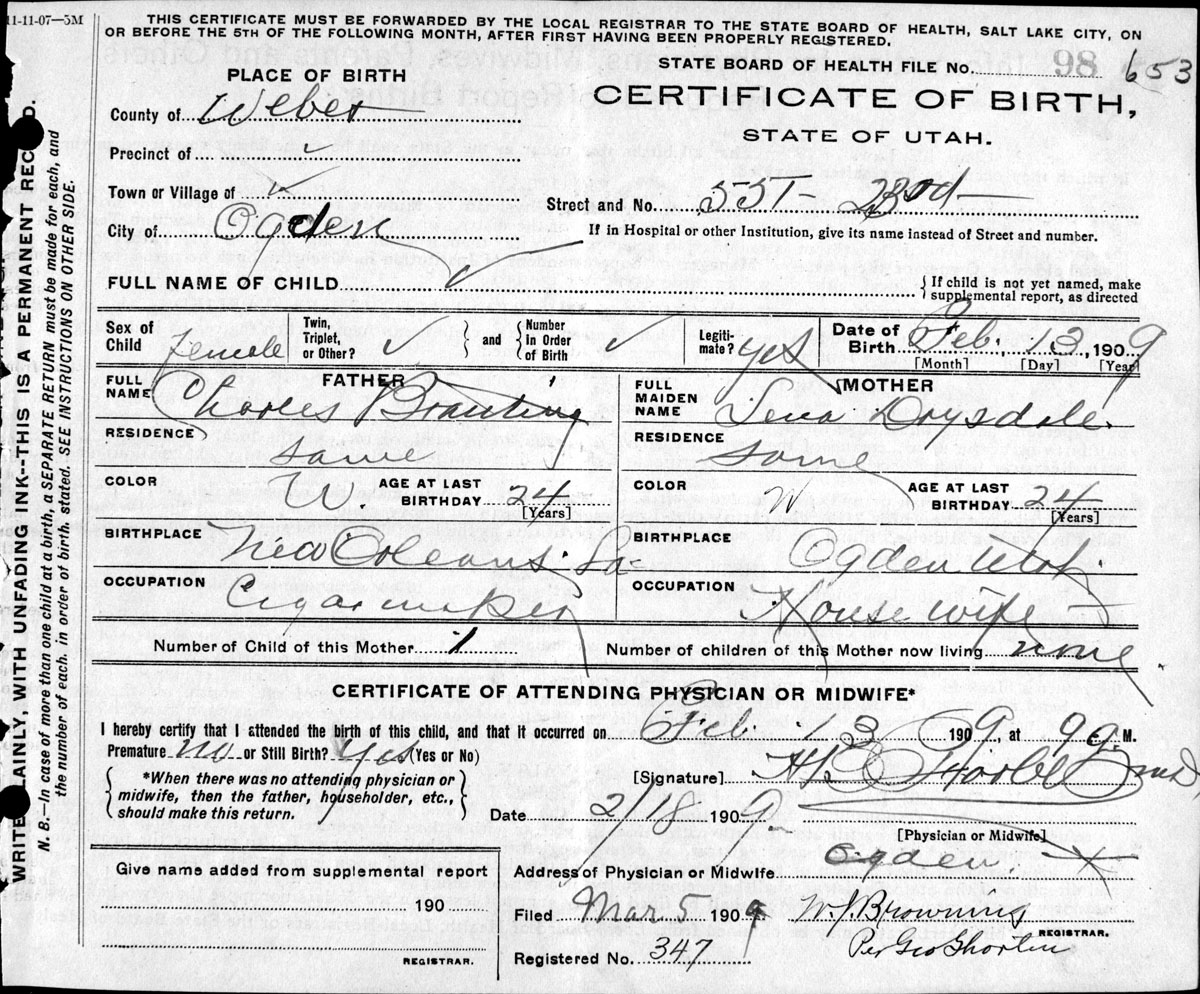 11-11-07—5M
THIS CERTIFICATE MUST BE FORWARDED BY THE LOCAL REGISTRAR TO THE STATE BOARD OF HEALTH, SALT LAKE CITY, ON
OR BEFORE THE 5TH OF THE FOLLOWING MONTH, AFTER FIRST HAVING BEEN PROPERLY REGISTERED.
STATE BOARD OF HEALTH FILE No. 98 653
PLACE OF BIRTH
CERTIFICATE OF BIRTH,
STATE OF UTAH.
County of Weber
Precinct of
Town or Village of
Street and No. 551 - 23rd
City of Ogden
If in Hospital or other Institution, give its name instead of Street and number.
FULL NAME OF CHILD
If child is not yet named, make
supplemental report, as directed
Sex of Child female
Twin, Triplet, or Other? and Number in Order of Birth
Legiti-mate? yes
Date of Birth Feb. 13, 1909
[Month] [Day] [Year]
FATHER
FULL NAME Charles Branting
MOTHER
FULL MAIDEN NAME Lena Drysdale
RESIDENCE same
RESIDENCE same
COLOR W. AGE AT LAST BIRTHDAY 24 [Years]
COLOR W AGE AT LAST BIRTHDAY 24 [Years]
BIRTHPLACE New Orleans La
BIRTHPLACE Ogden Utah
OCCUPATION Cigar maker
OCCUPATION House wife
Number of Child of this Mother 1 Number of children of this Mother now living none.
CERTIFICATE OF ATTENDING PHYSICIAN OR MIDWIFE*
I hereby certify that I attended the birth of this child, and that it occurred on Feb. 13 1909, at 9 a. M.
Premature no or Still Birth? Yes (Yes or No)
*When there was no attending physician or
midwife, then the father, householder, etc.,
should make this return.
[Signature] H.
Date 2/18 1909
[Physician or Midwife]
Address of Physician or Midwife Ogden.
Give name added from supplemental report
190
REGISTRAR.
Filed Mar 5 1909 W. J. Browning
REGISTRAR.
Registered No. 347 Per Geo Shorten
WRITE PLAINLY, WITH UNFADING INK--THIS IS A PERMANENT RECORD.
N. B.—In case of more than one child at a birth, a SEPARATE RETURN must be made for each, and
the number of each, in order of birth, stated. SEE INSTRUCTIONS ON OTHER SIDE.